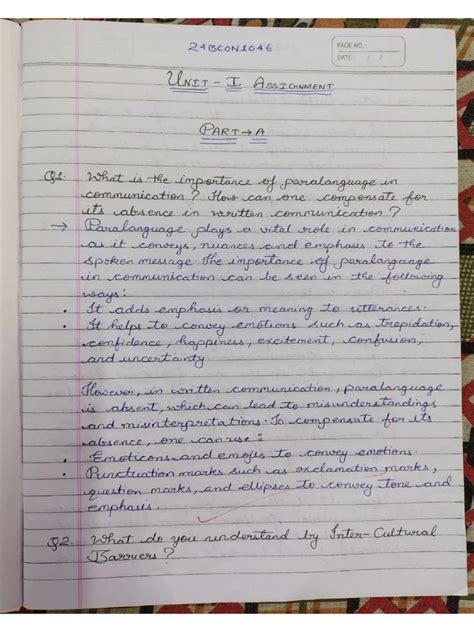 24BCON1046
PAGE NO.:
DATE: / /
UNIT - I ASSIGNMENT
PART → A
Q1. What is the importance of paralanguage in
communication? How can one compensate for
its absence in written communication?
→ Paralanguage plays a vital role in communication
as it conveys, nuances and emphasis to the
spoken message. The importance of paralanguage
in communication can be seen in the following
ways:
• It adds emphasis or meaning to utterances.
• It helps to convey emotions such as trepidation,
confidence, happiness, excitement, confusion,
and uncertainty
However, in written communication, paralanguage
is absent, which can lead to misunderstandings
and misinterpretations. To compensate for its
absence, one can use:
• Emoticons and emojis to convey emotions.
• Punctuation marks such as exclamation marks,
question marks, and ellipses to convey tone and
emphasis.
Q2. What do you understand by Inter-Cultural
Barriers?